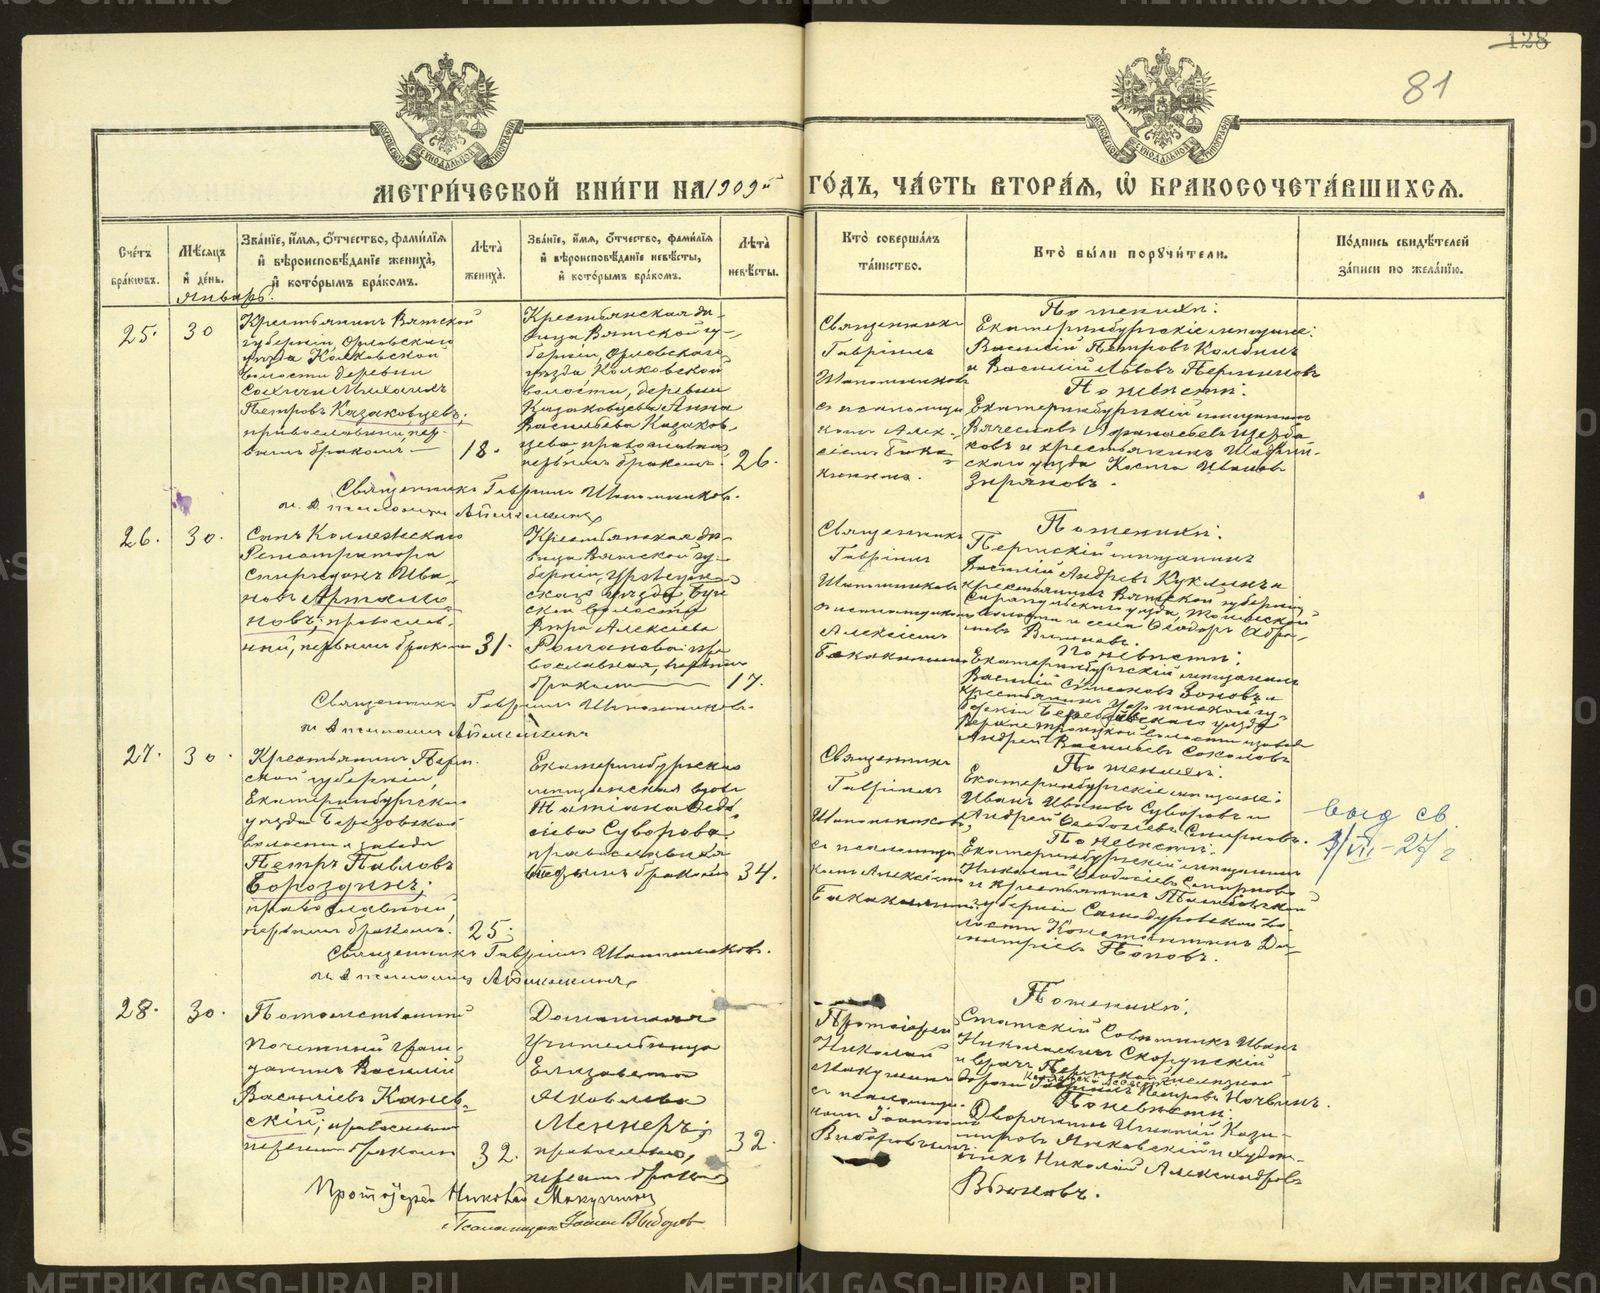 128
81
МЕТРИ́ЧЕСКОЙ КНИ́ГИ НА 1909й ГО́ДЪ, ЧА́СТЬ ВТОРА́Я, Ѡ БРАКОСОЧЕТА́ВШИХСЯ.
Сче́тъ бра́ковъ.
Мѣ́сяцъ и́ де́нь.
Зва́нїе, и́мя, о́тчество, фами́лїя и́ вѣроисповѣ́данїе жениха́, и́ кото́рымъ бра́комъ.
Лѣта̀ жениха̀.
Зва́нїе, и́мя, о́тчество, фами́лїя и́ вѣроисповѣ́данїе невѣ́сты, и́ кото́рымъ бра́комъ.
Лѣта̀ невѣ́сты.
Кто̀ соверша́лъ та́инство.
Кто̀ бы́ли поручи́тели.
По́дпись свидѣ́телей за́писи по жела́нїю.
Январь.
25. 30
Крестьянинъ Вятской
губерніи, Орловскаго
уѣзда Колковской
волости деревни
Михаилъ
Петровъ Казаковцевъ,
православный, пер-
вымъ бракомъ —
18.
Крестьянская дѣ-
вица Вятской гу-
берніи, Орловскаго
уѣзда Колковской
волости, деревни
Казаковцевы Анна
Васильева Казаков-
цева православная,
первымъ бракомъ.
26.
Священникъ
Гавріилъ
Шапошниковъ
съ псаломщи-
комъ Алек-
сіемъ
По женихѣ:
Екатеринбургскіе мѣщане:
Василій Петровъ Колбинъ
и Василій Львовъ Перминовъ
По невѣстѣ:
Екатеринбургскій мѣщанинъ
Вячеславъ Афанасьевъ Щерба-
ковъ и крестьянинъ Шадрин-
скаго уѣзда Коста Ивановъ
Зыряновъ.
Священникъ Гавріилъ Шапошниковъ.
26. 30.
Сынъ Коллежскаго
Регистратора
Спиридонъ Ива-
новъ Артамо-
новъ, православ-
ный, первымъ бракомъ
31.
Крестьянская дѣ-
вица Вятской гу-
берніи,
скаго уѣзда,
ской волости
Вѣра Алексіева
пра-
вославная, первымъ
бракомъ
17.
Священникъ
Гавріилъ
Шапошниковъ
съ псаломщикомъ
Алексіемъ
По женихѣ:
Пермскій мѣщанинъ
Василій Андреевъ Куклинъ и
крестьянинъ Вятской губерніи,
Сарапульскаго уѣзда,
волости и села Ѳеодоръ Абра-
мовъ
По невѣстѣ:
Екатеринбургскій мѣщанинъ
Василій Симеоновъ Зоновъ и
крестьянинъ
Андрей Васильевъ Соколовъ
Священникъ Гавріилъ Шапошниковъ.
27. 30.
Крестьянинъ Перм-
ской губерніи,
Екатеринбургскаго
уѣзда Березовской
волости и завода
Петръ Павловъ
Бороздинъ,
православный,
первымъ бракомъ.
25.
Екатеринбургская
мѣщанская вдова
Татіана Ѳедо-
сіева Суворова,
православная
вторымъ бракомъ
34.
Священникъ
Гавріилъ
Шапошниковъ,
съ псаломщи-
комъ Алексіемъ
По женихѣ:
Екатеринбургскіе мѣщане:
Иванъ Ивановъ Суворовъ и
Андрей Ѳеодосіевъ Смирновъ.
По невѣстѣ:
Екатеринбургскій мѣщанинъ
Николай Ѳеодосіевъ Смирновъ
и крестьянинъ Тамбовской
губерніи во-
лости Константинъ Ди-
митріевъ Поповъ.
выд св.
Священникъ Гавріилъ Шапошниковъ.
28. 30.
Потомственный
почетный граж-
данинъ Василій
Васильевъ Канев-
скій, православный
первымъ бракомъ
32.
Домашняя
Учительница
Елизавета
Яковлева
Меннеръ,
православная,
первымъ бракомъ
32.
Протоіерей
Николай
Макушинъ
съ псаломщи-
комъ Іоанномъ
Выборовымъ
По женихѣ:
Статскій Совѣтникъ Иванъ
Николаевичъ Скорупскій
и врачъ Пермской желѣзной
дороги
По невѣстѣ:
Дворянинъ Игнатій Кази-
міровъ Янковскій и худож-
никъ Николай Александровъ
Вьюновъ.
Протоіерей Николай Макушинъ
Псаломщикъ Іоаннъ Выборовъ
METRIKI.GASO-URAL.RU